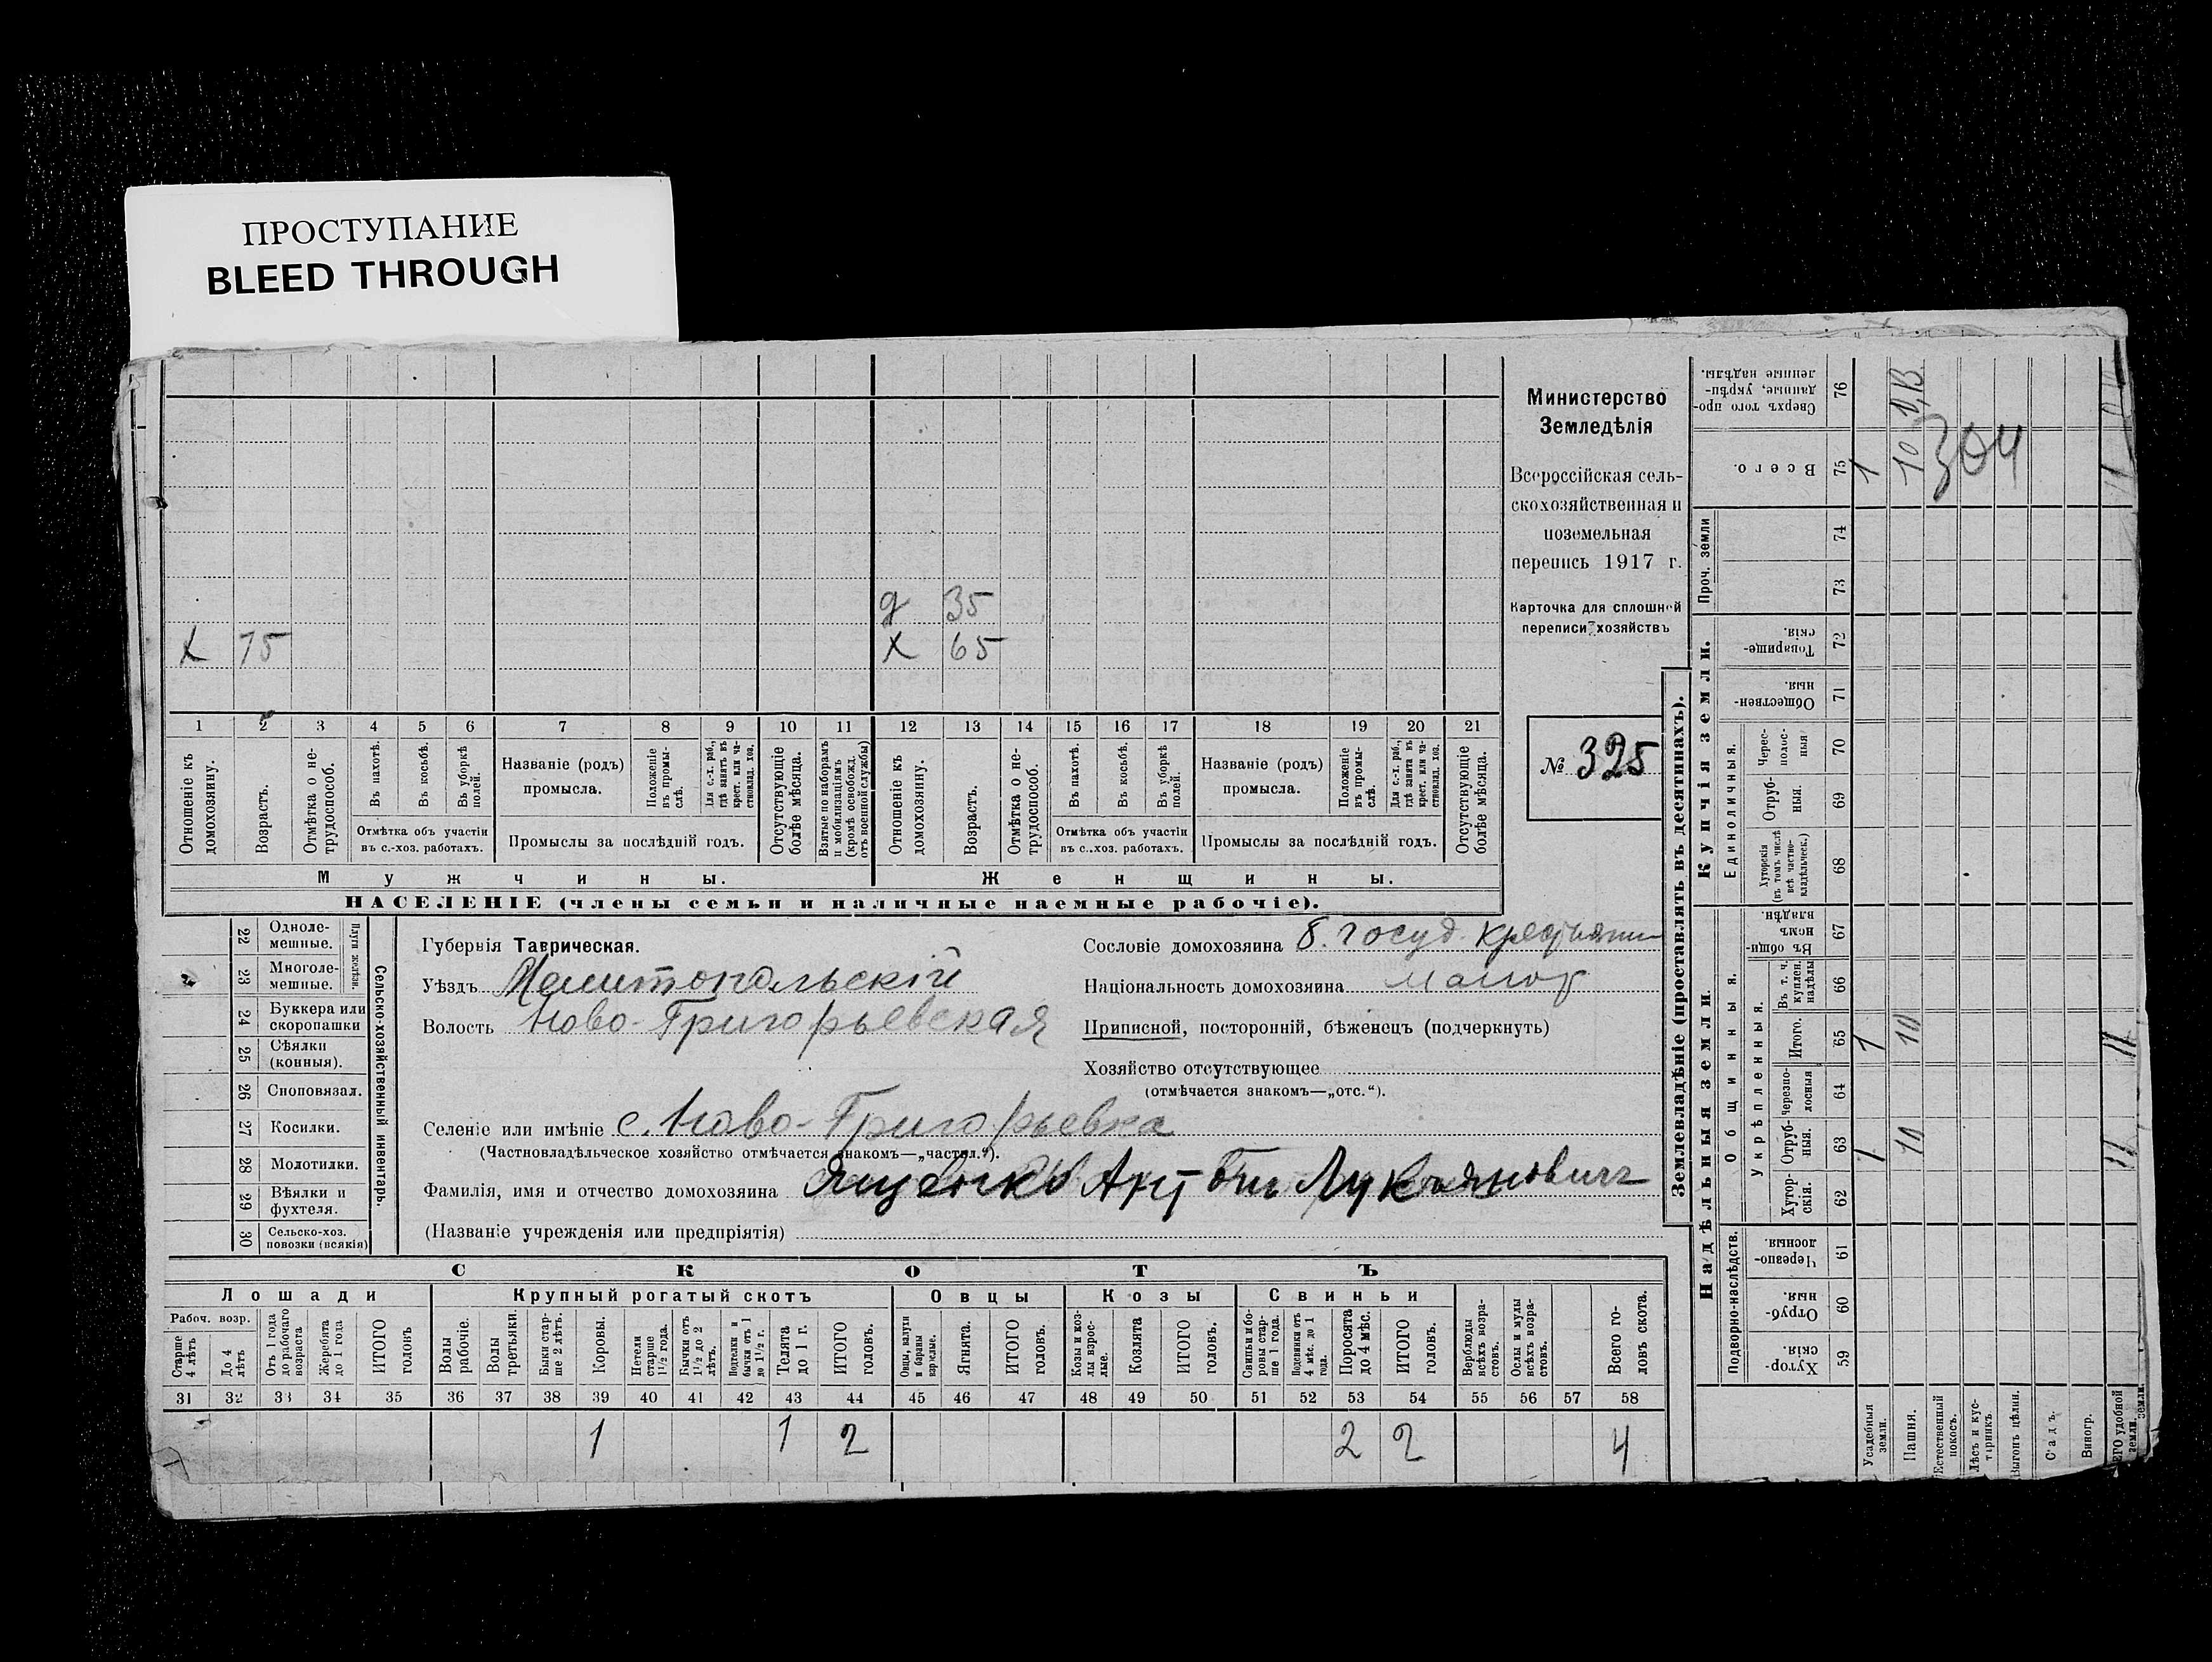 ПРОСТУПАНИЕ
BLEED THROUGH
Министерство
Земледѣлія
Всероссійская сель-
скохозяйственная и
поземельная
перепись 1917 г.
Карточка для сплошной
переписи хозяйствъ
№ 325
д 35
х 75 х 65
1 2 3 4 5 6 7 8 9 10 11 12 13 14 15 16 17 18 19 20 21
Отношеніе къ домохозяину.
Возрастъ.
Отмѣтка о не-трудоспособ.
Въ пахотѣ.
Въ косьбѣ.
Въ уборкѣ полей.
Отмѣтка объ участіи
въ с.-хоз. работахъ.
Названіе (родъ)
промысла.
Положеніе въ промы-слѣ.
Для с.-х. раб., гдѣ занятъ въ крест. или ча-стновлад. хоз.
Промыслы за послѣдній годъ.
Отсутствующіе болѣе мѣсяца.
Взятые по наборамъ и мобилизаціямъ (кромѣ освобожд. отъ военной службы)
Отношеніе къ домохозяину.
Возрастъ.
Отмѣтка о не-трудоспособ.
Въ пахотѣ.
Въ косьбѣ.
Въ уборкѣ полей.
Отмѣтка объ участіи
въ с.-хоз. работахъ.
Названіе (родъ)
промысла.
Положеніе въ промы-слѣ.
Для с.-х. раб., гдѣ занята въ крест. или ча-стновлад. хоз.
Промыслы за послѣдній годъ.
Отсутствующіе болѣе мѣсяца.
Мужчины. Женщины.
НАСЕЛЕНІЕ (члены семьи и наличные наемные рабочіе).
22 Одноле-мешные.
23 Многоле-мешные.
Плуги желѣзн.
24 Буккера или скоропашки
25 Сѣялки (конныя).
26 Сноповязал.
27 Косилки.
28 Молотилки.
29 Вѣялки и фухтеля.
30 Сельско-хоз. повозки (всякія)
Сельско-хозяйственный инвентарь.
Губернія Таврическая.
Уѣздъ Мелитопольскій
Волость Ново-Григорьевская
Сословіе домохозяина б. госуд. крестьянин
Національность домохозяина малор
Приписной, посторонній, бѣженецъ (подчеркнуть)
Хозяйство отсутствующее
(отмѣчается знакомъ—„отс.“).
Селеніе или имѣніе с. Ново-Григорьевка
(Частновладѣльческое хозяйство отмѣчается знакомъ—„частвл.“).
Фамилія, имя и отчество домохозяина Ященко Антонъ Лукьяновичъ
(Названіе учрежденія или предпріятія)
СКОТЪ
Лошади Крупный рогатый скотъ Овцы Козы Свиньи
Рабоч. возр.
Старше 4 лѣтъ
До 4 лѣтъ
Отъ 1 года до рабочаго возраста
Жеребята до 1 года
ИТОГО головъ
Волы рабочіе.
Волы третьяки.
Быки стар-ше 2 лѣтъ.
Коровы.
Нетели старше 1½ года.
Бычки отъ 1½ до 2 лѣтъ.
Подтелки и бычки отъ 1 до 1½ г.
Телята до 1 г.
ИТОГО головъ.
Овцы, валухи и бараны взрослые.
Ягнята.
ИТОГО головъ.
Козы и коз-лы взрос-лые.
Козлята
ИТОГО головъ.
Свиньи и бо-ровы стар-ше 1 года.
Подсвинки отъ 4 мѣс. до 1 года.
Поросята до 4 мѣс.
ИТОГО головъ.
Верблюды всѣхъ возра-стовъ.
Ослы и мулы всѣхъ возра-стовъ.
Всего го-ловъ скота.
31 32 33 34 35 36 37 38 39 40 41 42 43 44 45 46 47 48 49 50 51 52 53 54 55 56 57 58
1 1 2 2 2 4
Землевладѣніе (проставлять въ десятинахъ).
Надѣльныя земли. Купчія земли.
Подворно-наслѣдств.
Общинныя.
Укрѣпленныя.
Единоличныя.
Проч. земли
Хутор-скія. 59
Отруб-ныя. 60
Черезпо-лосныя. 61
Хутор-скія. 62
Отруб-ныя. 63 1 10 11
Черезпо-лосныя 64
Итого. 65 1 10 11
Въ т. ч. куплен. надѣлы 66
Въ общи-номъ владѣн. 67
Хуторскія (въ томъ числѣ всѣ частно-владѣльческ.) 68
Отруб-ныя. 69
Черес-полос-ныя 70
Обществен-ныя. 71
Товарище-скія. 72
73
74
Всего. 75 1 10 11
304
Сверхъ того про-данные, укрѣп-ленные надѣлы. 76
Усадебныя земли.
Пашня.
Естественный покосъ.
Лѣсъ и кус-тарникъ
Выгонъ цѣлин.
Садъ.
Виногр.
ВСЕГО удобной земли.